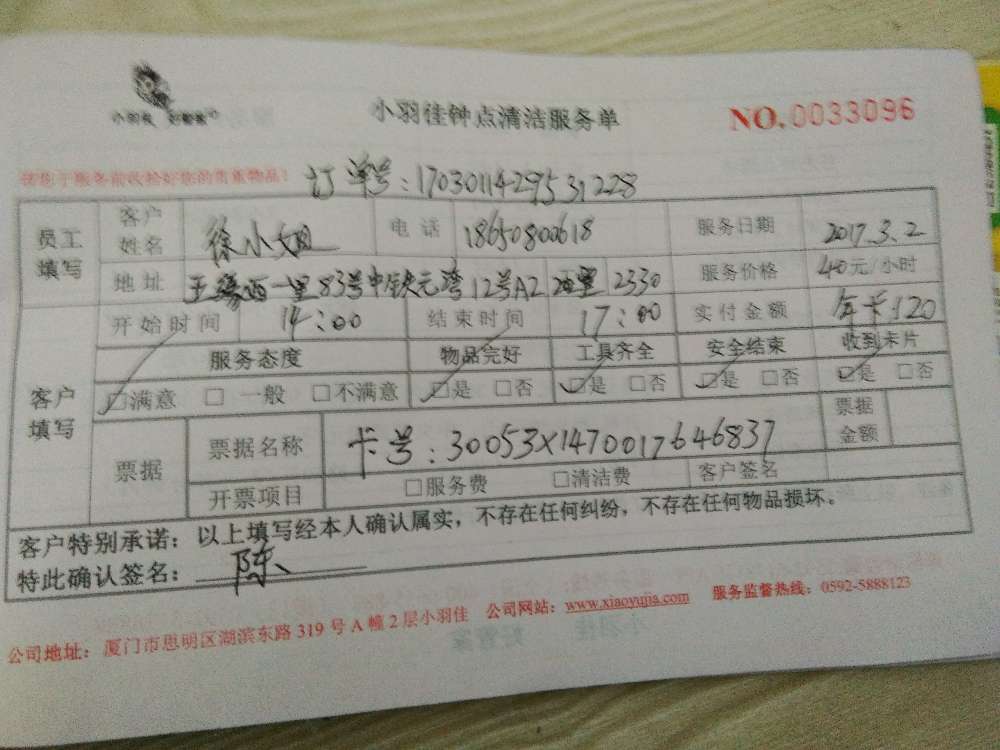 小羽佳 好管家
小羽佳钟点清洁服务单
NO.0033096
请您于服务前收拾好您的贵重物品!
订单号:1703011429531228
员工填写 客户姓名 徐小姐 电话 18650800618 服务日期 2017.3.2
地址 一里83号中铁元湾12号A2 2330 服务价格 40元/小时
客户填写 开始时间 14:00 结束时间 17:00 实付金额 年卡120
服务态度 物品完好 工具齐全 安全结束 收到卡片
☑满意 □一般 □不满意 ☑是 □否 ☑是 □否 ☑是 □否 ☑是 □否
票据 票据名称 卡号:30053X1470017646837 票据金额
开票项目 □服务费 □清洁费 客户签名
客户特别承诺:以上填写经本人确认属实,不存在任何纠纷,不存在任何物品损坏。
特此确认签名:陈
公司地址:厦门市思明区湖滨东路319号A幢2层小羽佳 公司网站:www.xiaoyujia.com 服务监督热线:0592-5888123